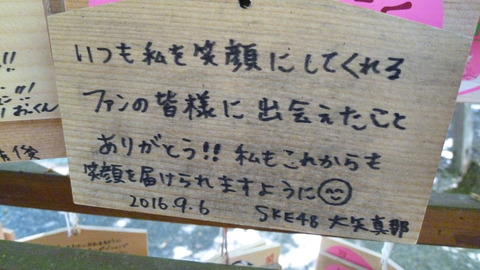 いつも私を笑顔にしてくれる
ファンの皆様に出会えたこと
ありがとう!! 私もこれからも
笑顔を届けられますように
2016.9.6 SKE48 大矢真那